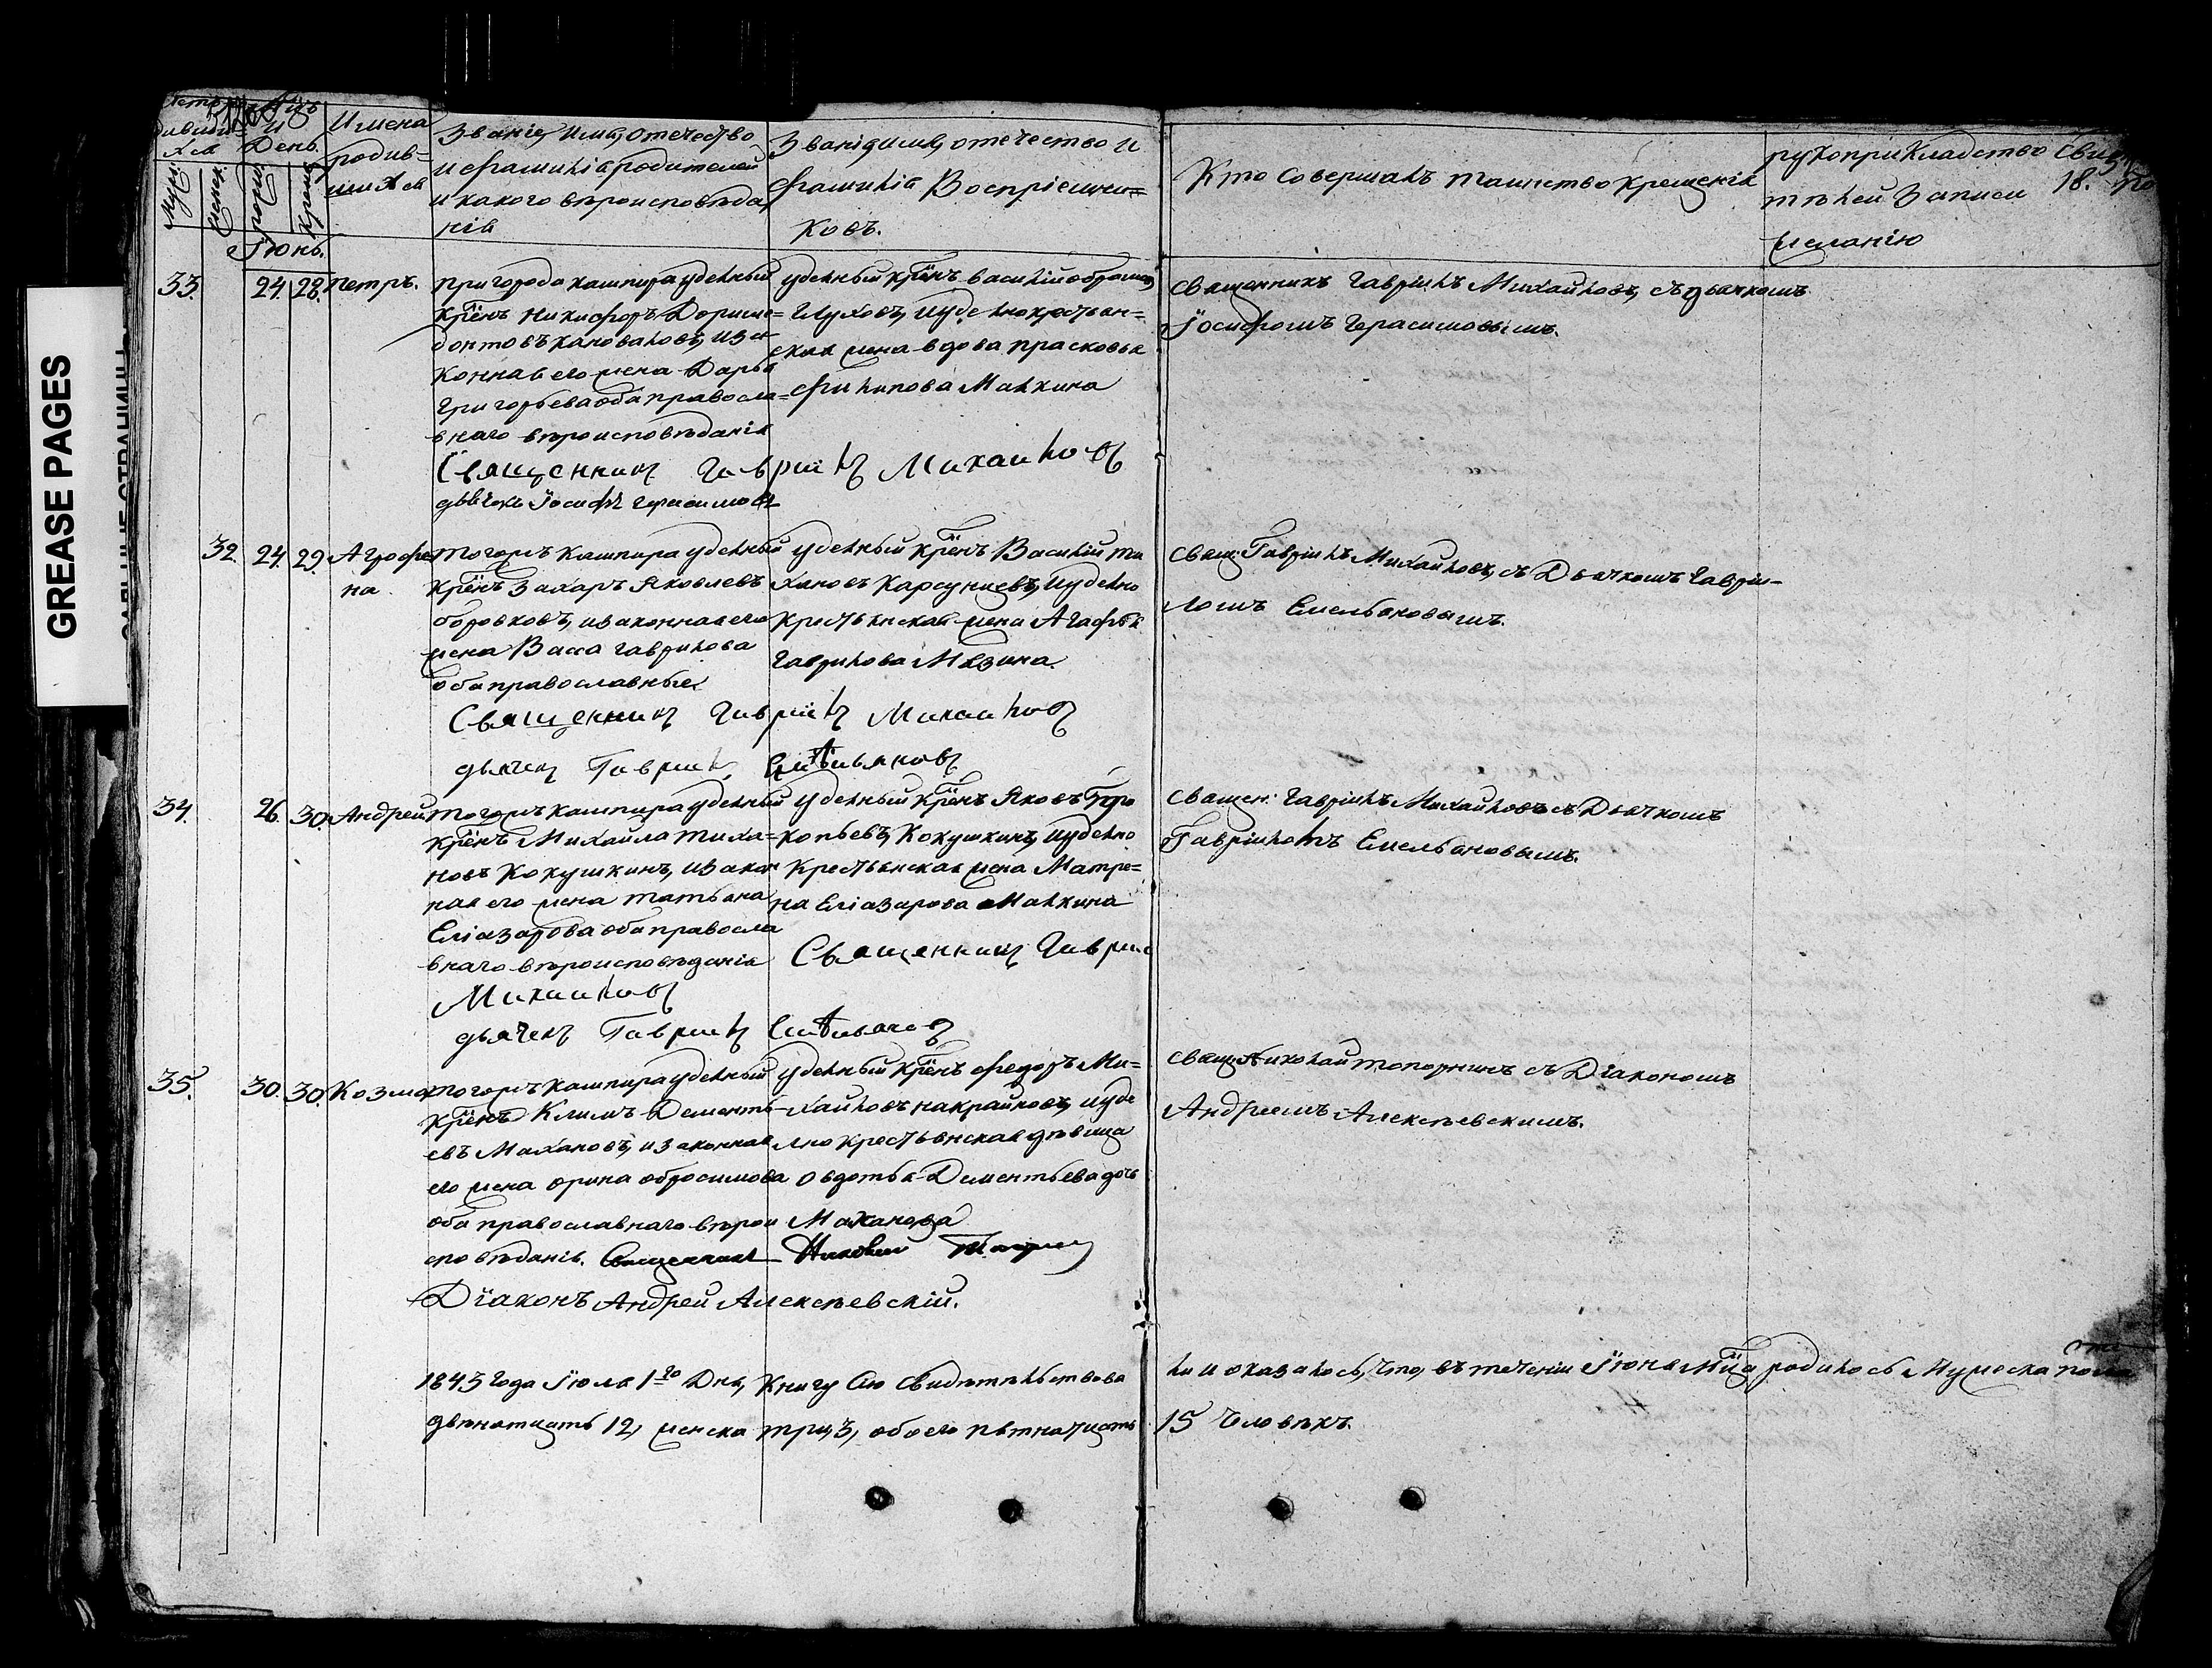 GREASE PAGES
Мѣсяцъ
и
День.
Имена
родив-
шихся
Званіе, имя, отечество
и фамилія родителей
и какого вѣроисповѣда
нія
Званіе, имя, отечество и
фамилія Воспріемни-
ковъ.
Кто совершалъ таинство крещенія
рукоприкладство
тѣлей записи
желанію
18.
Іюнь.
33. 24. 28. Петръ.
пригорода кашпира удельный
крѣнъ Никифоръ Дориме-
донтовъ, изъ за
конная его жена Дарья
Григорьева оба правосла-
внаго вѣроисповѣданія
удельный крѣнъ василій
Глуховъ, и удельнокрестьян-
ская жена вдова прасковья
филипова Малкина
Священникъ Гавріилъ Михайловъ, съ дьячкомъ
Іосифомъ Герасимовымъ.
Священникъ Гавріилъ Михайловъ
дьячекъ Іосифъ Герасимовъ
32. 24. 29. Агрофе
на
тогожъ кашпира удельный
крѣнъ Захаръ Яковлевъ
Боровковъ, и законная его
жена Васса гаврилова
оба православные.
удельный крѣнъ Василій ти
хановъ Карсунцевъ, и удельно
Крестьянская жена Агафья
гаврилова Мазина.
свящ: Гавріилъ Михайловъ, съ Дьячкомъ Гаврі-
ломъ Емельяновымъ.
Священникъ Гавріилъ Михайловъ
дьячекъ Гавріилъ Емельяновъ
34. 26. 30. Андрей
тогожъ кашпира удельный
крѣнъ Михайла тиха-
новъ Кокушкинъ, и закон
ная его жена татьяна
Еліазарова оба правосла
внаго вѣроисповѣданія
удельный крѣнъ Яковъ Про
копьевъ, Кокушкинъ, и удельно
Крестьянская жена Матре-
на Еліазарова Малкина
священ: Гавріилъ Михайловъ съ Дьячкомъ
Гавріиломъ Емельяновымъ.
Священникъ Гавріилъ
Михайловъ
дьячекъ Гавріилъ Емельяновъ
35. 30. 30. Козма
тогожъ кашпира удельный
крѣнъ Климъ Дементь-
евъ Махановъ, и законная
его жена орина обросимова
оба православнаго вѣрои
сповѣданія.
удельный крѣнъ федоръ Ми-
хайловъ накрайновъ, и уде
лно крестьянская дѣвица
овдотья Дементьева дочь
Маханова
свящ: Николай топорнинъ съ Діакономъ
Андреемъ Алексѣевскимъ.
Священникъ Николай
Діаконъ Андрей Алексѣевскій.
1843 года Іюля 1го Дня, Книгу Сію Свидѣтельствова
ли и оказалось, что, въ теченіи Іюня мца родилось Мужеска пола
двѣнатцать 12, женска три 3, обоего пятнатцать
15 человѣкъ.